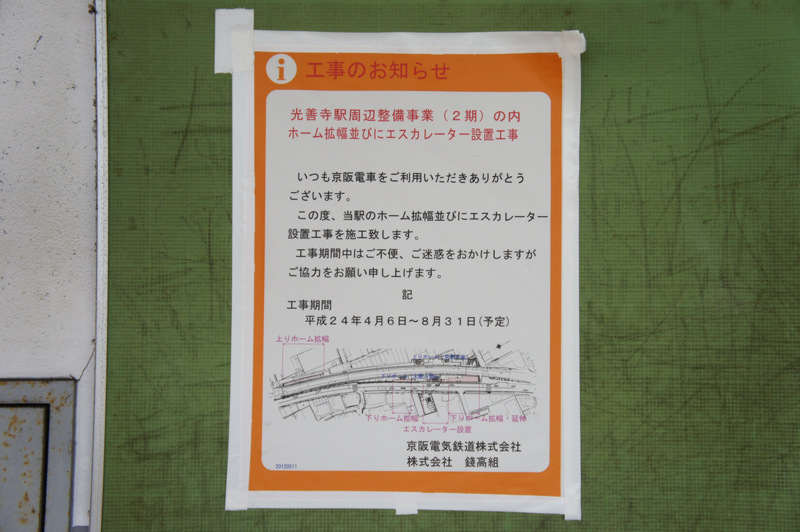 i 工事のお知らせ
光善寺駅周辺整備事業（２期）の内
ホーム拡幅並びにエスカレーター設置工事
いつも京阪電車をご利用いただきありがとう
ございます。
この度、当駅のホーム拡幅並びにエスカレーター
設置工事を施工致します。
工事期間中はご不便、ご迷惑をおかけしますが
ご協力をお願い申し上げます。
記
工事期間
平成２４年４月６日～８月３１日(予定)
上りホーム拡幅
下りホーム拡幅
下りホーム拡幅・延伸
エスカレーター設置
京阪電気鉄道株式会社
株式会社　錢高組